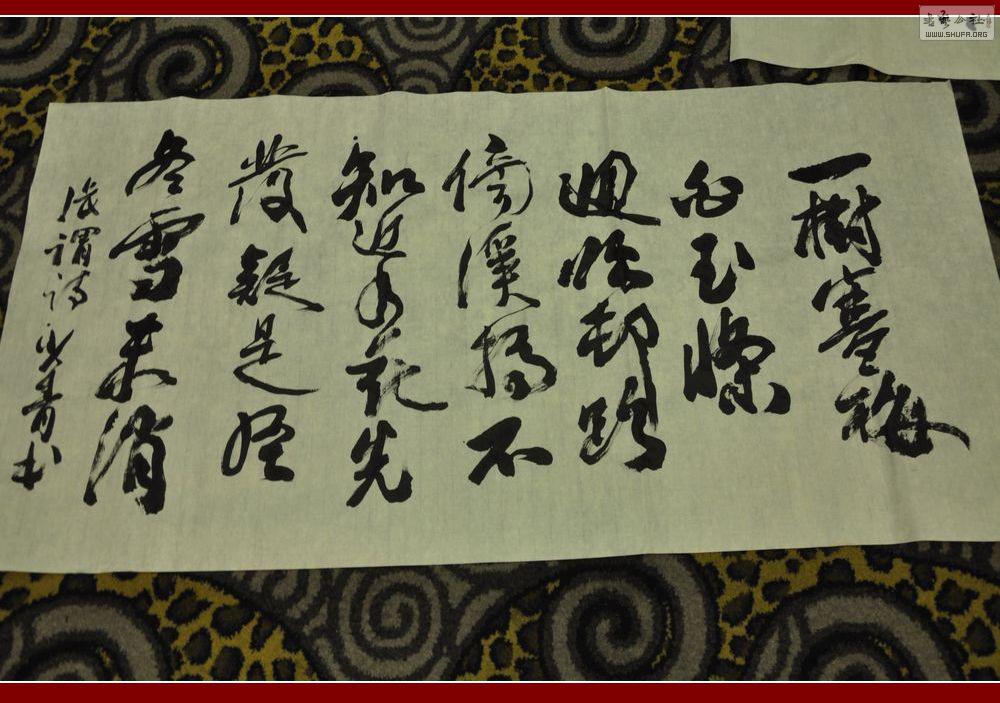 一樹寒梅
白玉條
迴临邨路
傍溪橋不
知近水花先
發疑是经
冬雪未消
张谓诗永青书
书艺公社
WWW.SHUFA.ORG